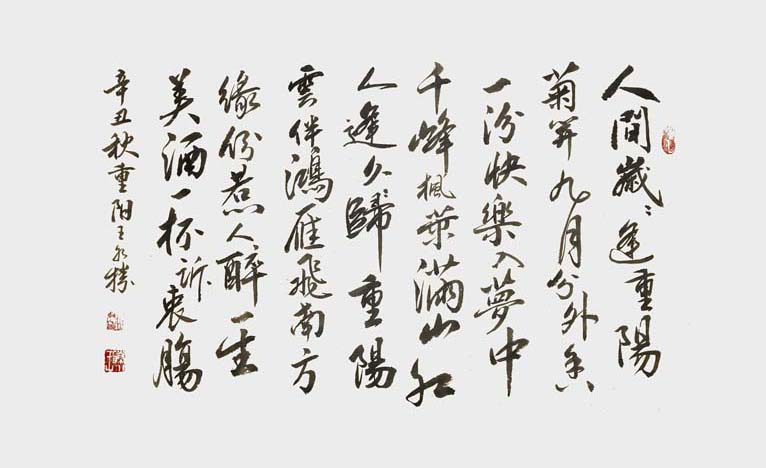 人間歲々逢重陽
菊开九月分外香
一份快樂入夢中
千峰楓葉滿山红
人逢久歸重陽
雲伴鴻雁飛南方
緣份惹人醉一生
美酒一杯訴衷腸
辛丑秋重阳王永勝